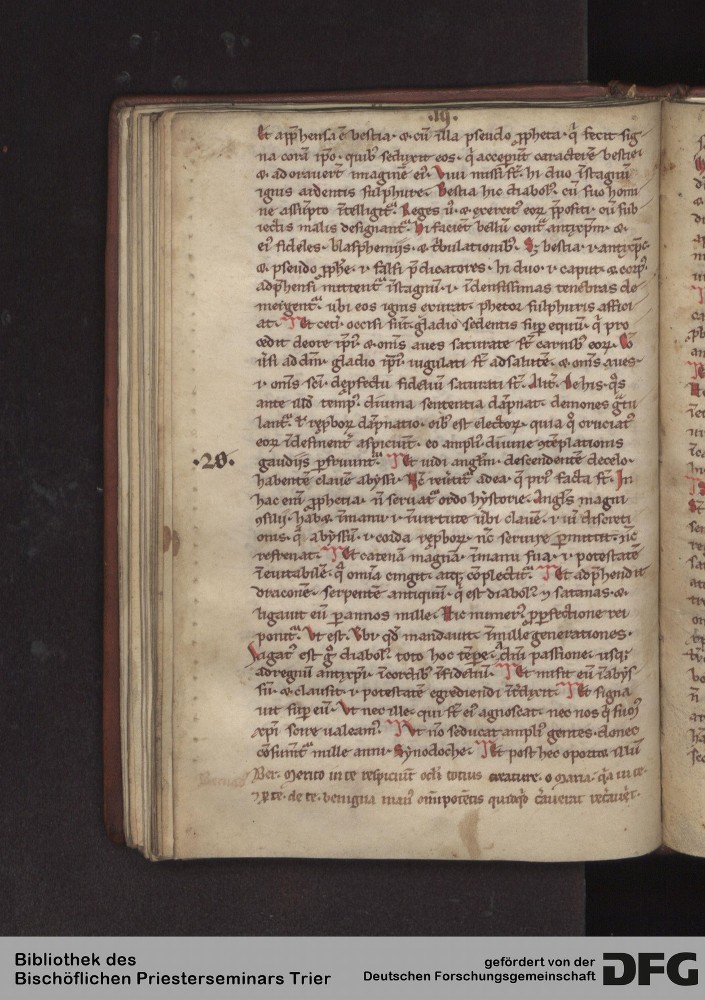 .19.
Et app̄hensa ē bestia · ⁊ cū illa pseudo ꝓpheta · q̄ fecit sig-
na corā ip̄o · quib᷒ seduxit eos · q̄ acceper̄t caracterē bestie ·
⁊ adorauer̄t imaginē ei᷒. Viui missi st̄ · hi duo ī stagnū
ignis ardentis sulphure. Bestia hic diabol᷒ cū suo homi
ne assūpto ītelligit᷑. Reges ū · ⁊ exercit᷒ eor̄ p̄positi · cū sub
iectis malis designant᷑. Hi faciēt bellū cont᷑ antixp̄m · ⁊
ei᷒ fideles · blasphemijs · ⁊ t̄bulationib᷒. bestia · i · antixp̄c ·
⁊ pseudo ꝓph̄e · i · falsi p̄dicatores · hi duo · i · caput · ⁊ corp᷒ ·
adp̄hensi mittent᷑ ī stagnū · i · ī densissimas tenebras de
mergent᷑ · ubi eos ignis exurat · phetor sulphuris affici
at. Et cet̄i occisi sūt gladio sedentis suꝑ equū · q̄ pro
cedit de ore ip̄i᷒ · ⁊ om̄s aues saturate st̄ carnib᷒ eor̄.
isti ad dm̄ · gladio ip̄i᷒ iugulati st̄ ad salutē · ⁊ om̄s aues ·
i · om̄s sc̄i · de ꝑfectu fideliū saturati st̄. Alit᷑. De his · q̄s
ante illd̄ temp᷒ · diuina sententia dāpnat · demones
lant᷑. ꝛ reꝓbor̄ dāpnatio · oib᷒ est elector̄ · quia q̄ cruciat᷒
eor̄ īdesinent᷑ aspiciūt · eo ampli᷒ diuine ꝯtēplationis
.20. gaudijs ꝑfruunt᷑. Et uidi angl̄m · descendentē de celo ·
habentē clauē abyssi. Nc̄ reu̅tit᷑ ad ea · q̄ pri᷒ facta st̄. In
hac eni ꝓphetia · n̄ seruat᷑ ordo hystorie. Angl̄s magni
ꝯsilij · hab&s · ī manu · i · ī uirtute clauē · i · discreti
onis · q̄ abyssū · i · corda reꝓbor̄ · nc̄ seruire ꝑmittit · nc̄
refrenat. Et catenā magnā · ī manu sua · i · potestatē
ī euitabilē · q̄ omīa cingit · atq; cōplectit᷑. Et adp̄hendit
draconē · serpentē antiquū · q̄ est diabol᷒ ⁊ satanas · ⁊
ligauit eū ꝑ annos mille. Hic numer᷒ ꝓ ꝑfectione rei
ponit᷑. Vt est. Vbi qd̄ mandauit · ī mille generationes ·
Ligat᷒ est g° diabol᷒ toto hoc tēpe · a dn̄i passione · usq;
ad regnū antixp̄i · ī cordib᷒ ī fideliū. Et misit eū ī abys
sū · ⁊ clausit · i · potestatē egrediendi īt̄dixit. Et signa
uit suꝑ eū. Vt nec ille · qui st̄ ei᷒ agnoscat · nec nos q̄ suos
xp̄i scire ualeam᷒. Vt nō seducat ampli᷒ gentes · donec
cōsum̄t᷑ mille anni · Synodoche. Et post hec oport& illū
Ber. Merito in te respiciūt oc̄li totius creature · o maria · q̄a in te ·
⁊ ꝑ te · de te · benigna man᷒ omīpotētis quicq̄d c̄auerat rec̄auit.
Bibliothek des
Bischöflichen Priesterseminars Trier
gefördert von der
Deutschen Forschungsgemeinschaft
DFG